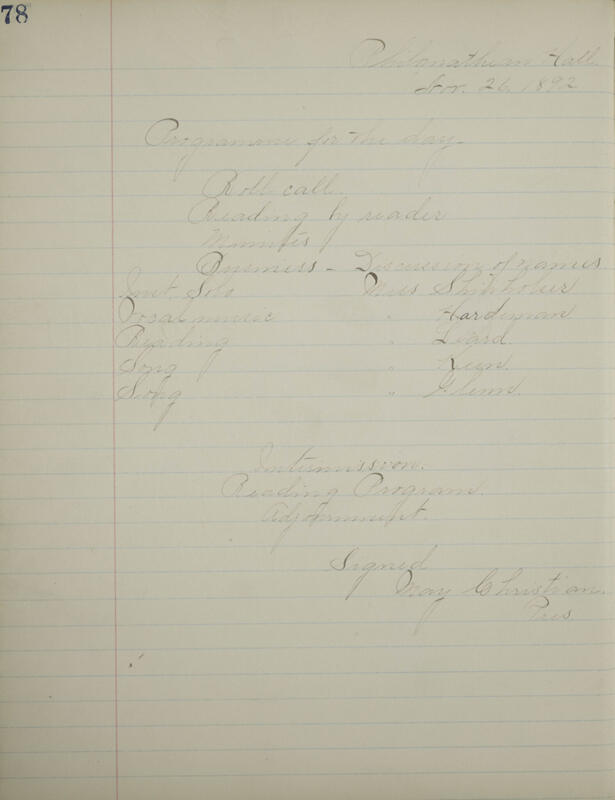 78
Philomathean Hall
Nov. 26, 1892
Programme for the day.
Roll call.
Reading by reader
Minutes
Business - Discussion of names.
Inst. Solo Miss
Vocal music " Hardeman
Reading " Liard.
Song " Keen.
Song " Glenn.
Intermission.
Reading Program.
Adjournment.
Signed
May Christian.
Pres